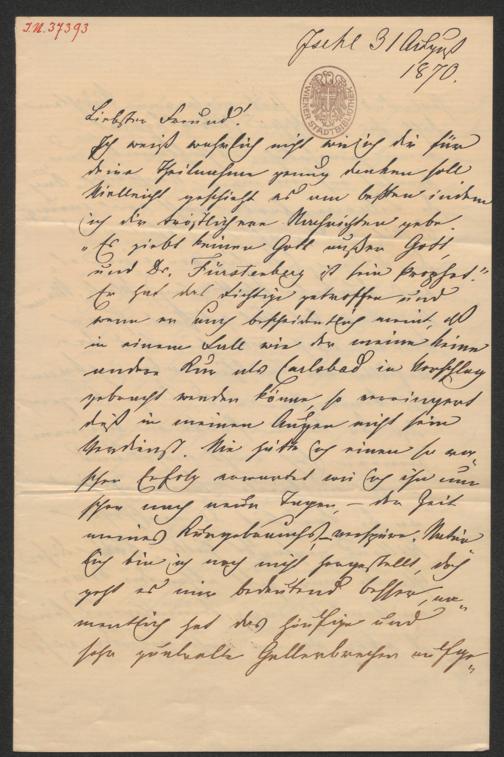 I.N. 37393
Ischl 31 August
1870.
WIENER STADTBIBLIOTHEK
Liebster Freund!
Ich weiß wahrlich nicht wie ich dir für
deine Theilnahme genug danken soll
Vielleicht geschieht es am besten indem
ich dir tröstlichere Nachrichten gebe.
"Es giebt keinen Gott außer Gott,
und Dr. Fürstenberg ist sein Prophet."
Er hat das Richtige getroffen und
wenn er auch bescheidentlich meint, daß
in einem Fall wie der meine keine
andere Kur als Carlsbad in Vorschlag
gebracht werden könne, so verringert
dieß in meinen Augen nicht sein
Verdienst. Nie hätte ich einen so ra-
schen Erfolg erwartet wie ich ihn nun
schon nach neun Tagen, – der Zeit
meines Kurgebrauchs, – verspüre. Natür
lich bin ich noch nicht hergestellt, doch
geht es mir bedeutend besser, na-
mentlich hat das häufige und
sehr qualvolle Gallenbrechen aufge-